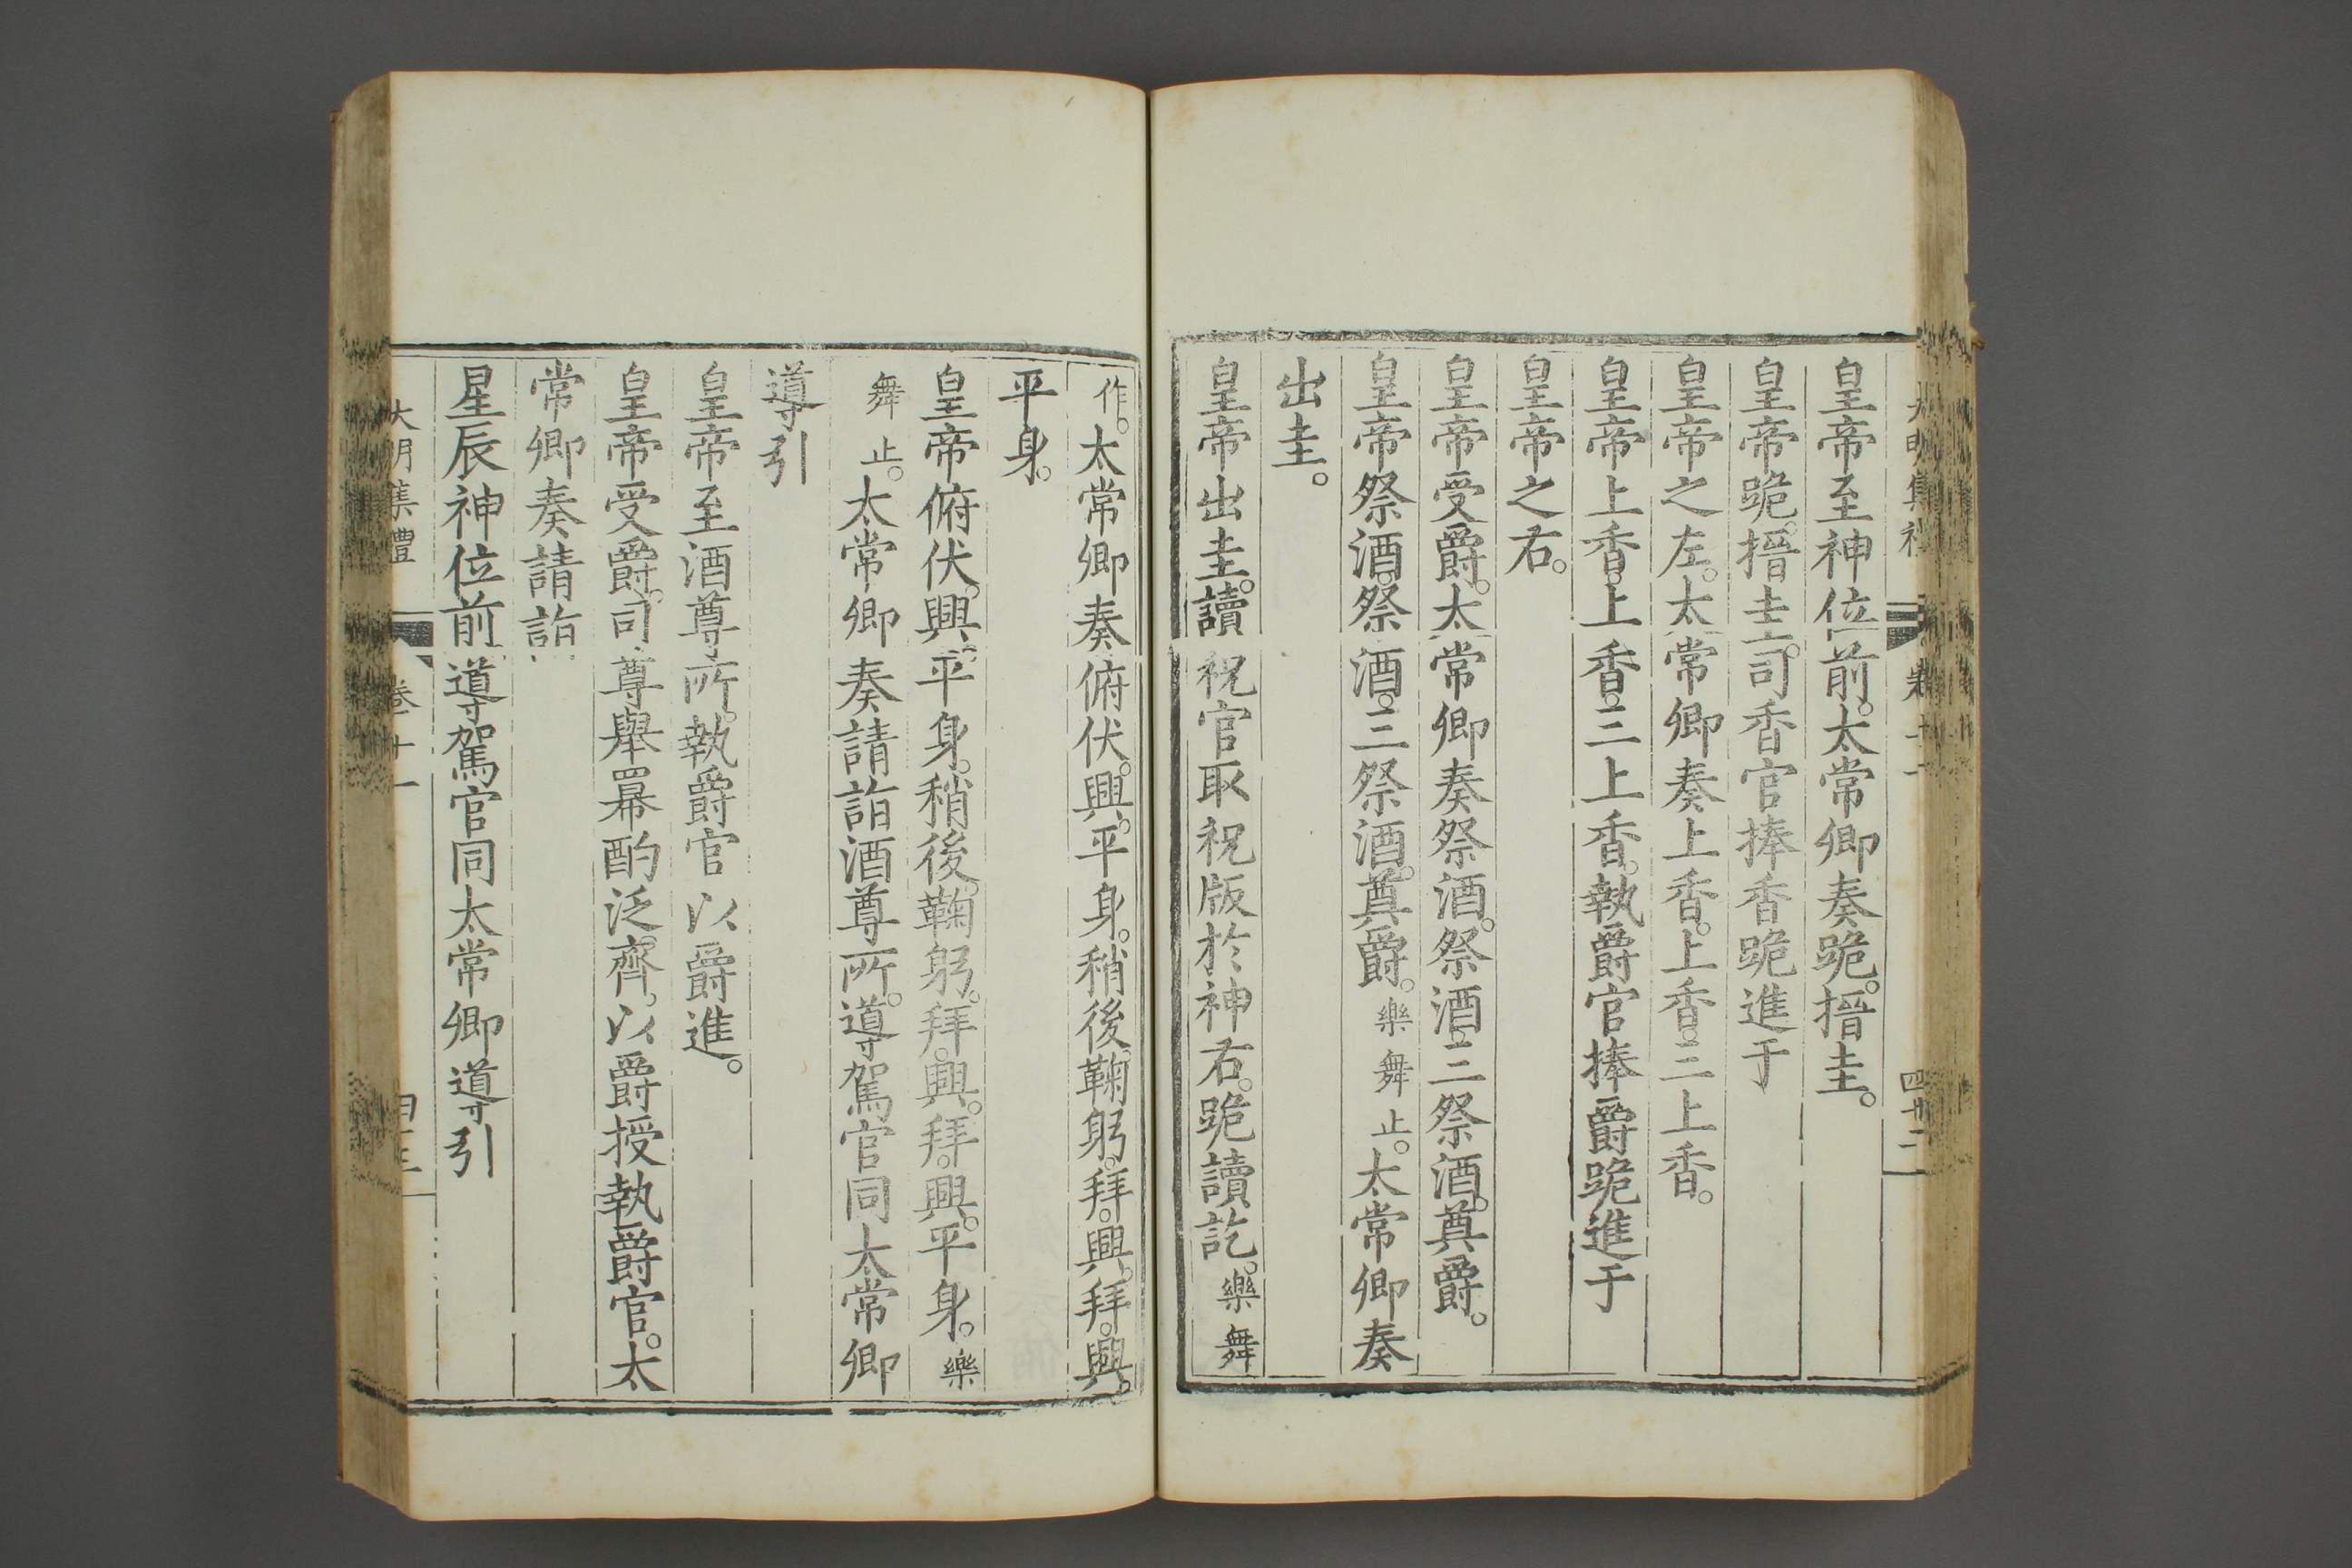 皇帝至神位前。太常卿奏跪。搢圭。
皇帝跪。搢圭。司香官捧香跪進于
皇帝之左。太常卿奏上香。上香。三上香。
皇帝上香。上香。三上香。執爵官捧爵跪進于
皇帝之右。
皇帝受爵。太常卿奏祭酒。祭酒。三祭酒。奠爵。
皇帝祭酒。祭酒。三祭酒。奠爵。樂舞止。太常卿奏
出圭。
皇帝出圭。讀祝官取祝版於神右。跪讀訖。樂舞
作。太常卿奏俯伏。興。平身。稍後鞠躬。拜。興。拜。興。
平身。
皇帝俯伏。興。平身。稍後。鞠躬。拜。興。拜。興。平身。樂
舞止。太常卿奏請詣酒尊所。導駕官同太常卿
導引
皇帝至酒尊所。執爵官以爵進。
皇帝受爵。司尊舉冪酌泛齊。以爵授執爵官。太
常卿奏請詣
星辰神位前導駕官同太常卿導引
大明集禮 卷十一